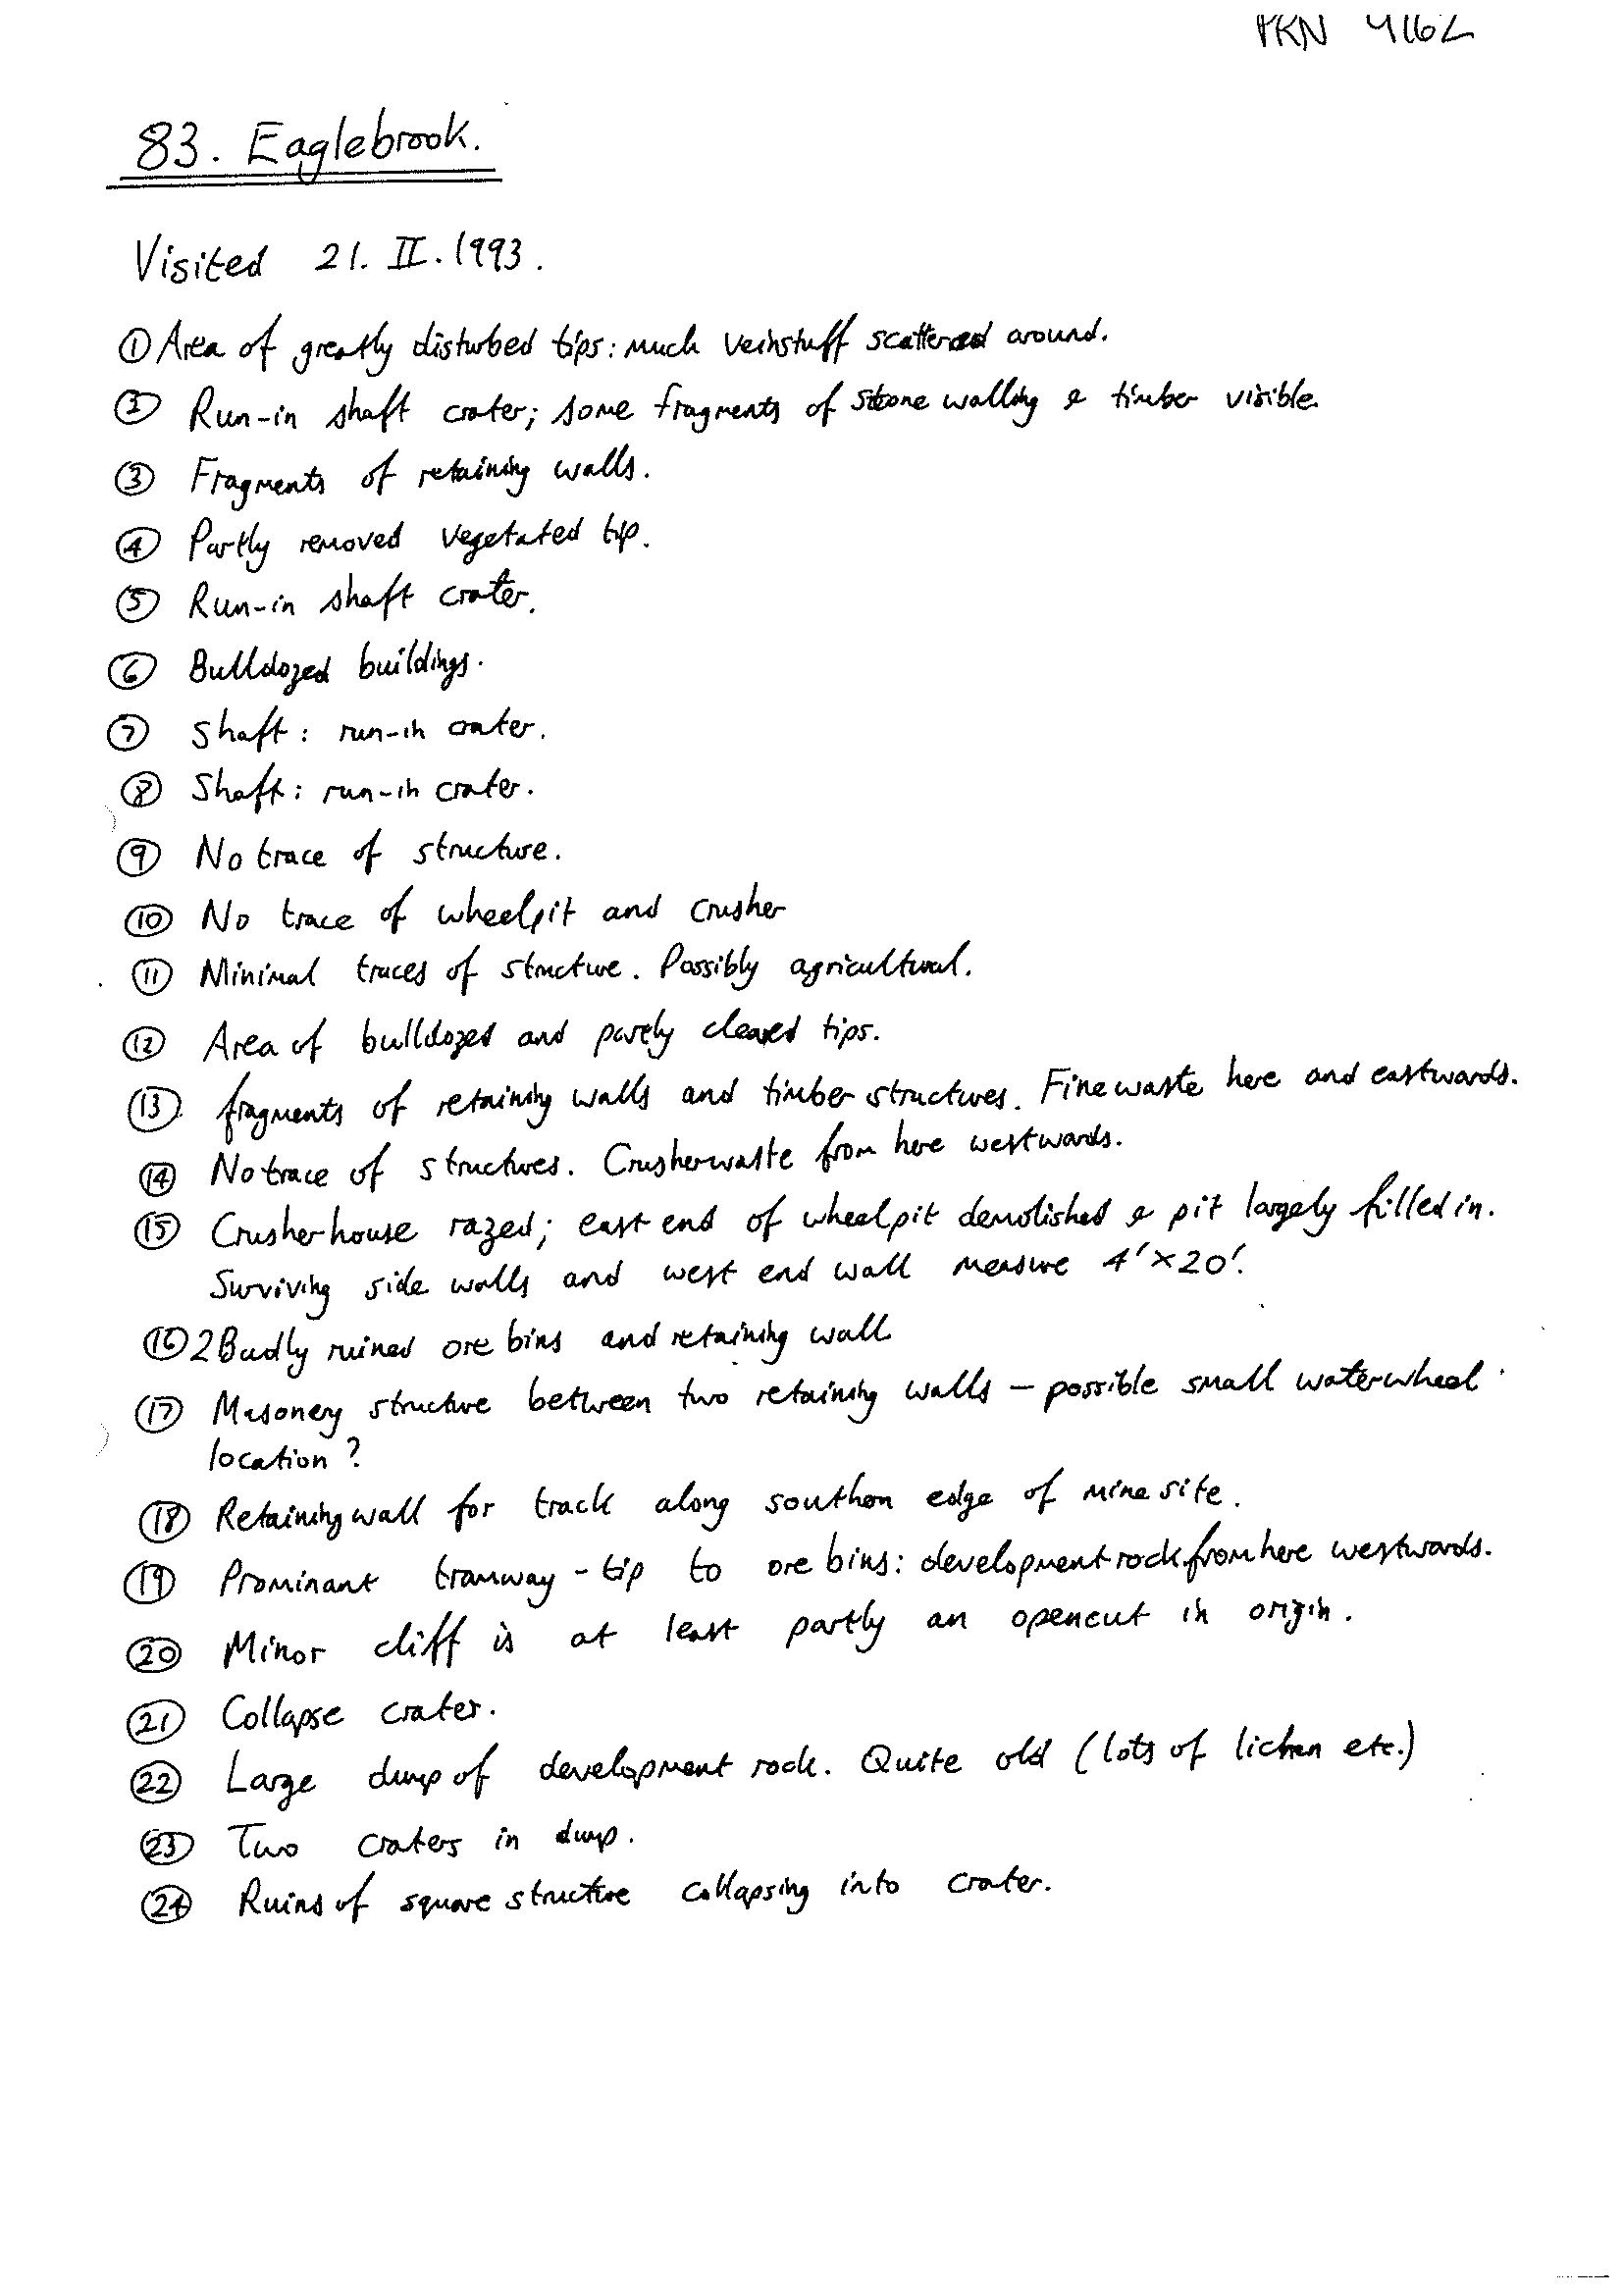 PRN 4162
83. Eaglebrook.
Visited 21. II. 1993.
① Area of greatly disturbed tips: much veinstuff scattered around.
② Run-in shaft crater; some fragments of stone walling & timber visible.
③ Fragments of retaining walls.
④ Partly removed vegetated tip.
⑤ Run-in shaft crater.
⑥ Bulldozed buildings.
⑦ Shaft: run-in crater.
⑧ Shaft: run-in crater.
⑨ No trace of structure.
⑩ No trace of wheelpit and crusher
⑪ Minimal traces of structure. Possibly agricultural.
⑫ Area of bulldozed and partly cleared tips.
⑬ fragments of retaining walls and timber structures. Fine waste here and eastwards.
⑭ No trace of structures. Crusherwaste from here westwards.
⑮ Crusherhouse razed; east end of wheelpit demolished & pit largely filled in.
Surviving side walls and west end wall measure 4' x 20'.
⑯ 2 Badly ruined ore bins and retaining wall
⑰ Masonery structure between two retaining walls – possible small waterwheel
location?
⑱ Retaining wall for track along southern edge of mine site.
⑲ Prominant tramway-tip to ore bins: development rock from here westwards.
⑳ Minor cliff is at least partly an opencut in origin.
㉑ Collapse crater.
㉒ Large dump of development rock. Quite old (lots of lichen etc.)
㉓ Two craters in dump.
㉔ Ruins of square structure collapsing into crater.